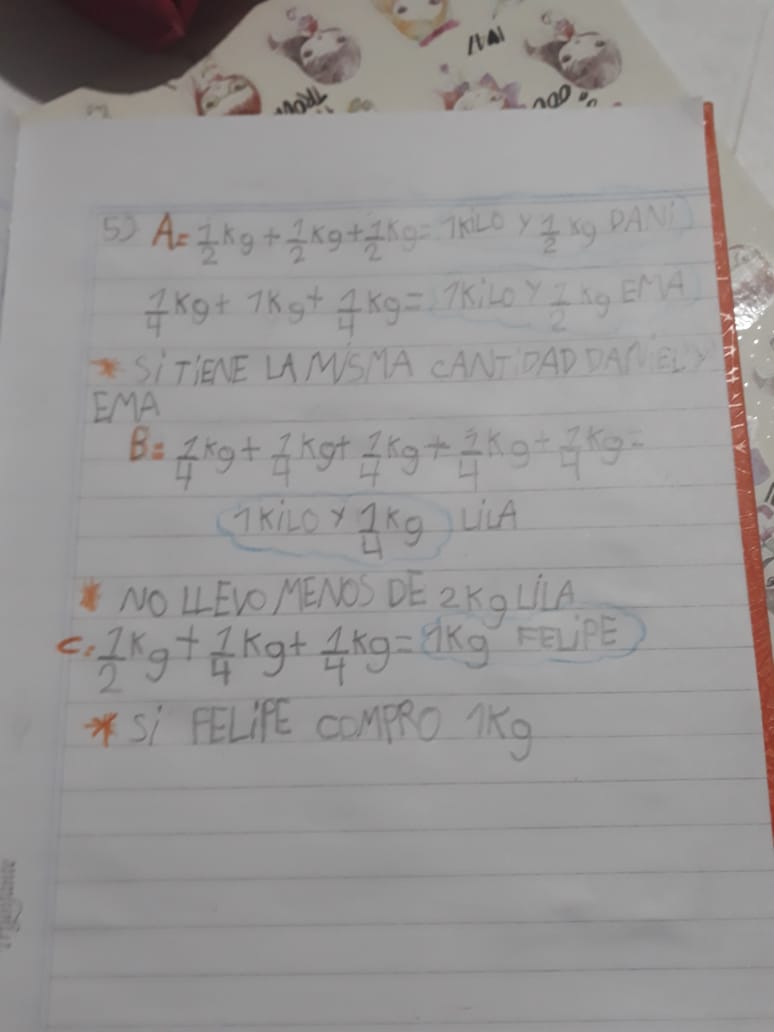 5) A= 1/2 kg + 1/2 kg + 1/2 kg = 1KiLO Y 1/2 kg DANi
1/4 kg + 1Kg + 1/4 kg = 1KiLO Y 1/2 kg EMA
* Si TiENE LA MiSMA CANTiDAD DANiEL Y
EMA
B= 1/4 kg + 1/4 kg + 1/4 kg + 1/4 kg + 1/4 kg =
1KiLO Y 1/4 kg LiLA
* NO LLEVO MENOS DE 2Kg LiLA
C. 1/2 kg + 1/4 kg + 1/4 kg = 1Kg FELiPE
* Si FELiPE COMPRO 1Kg